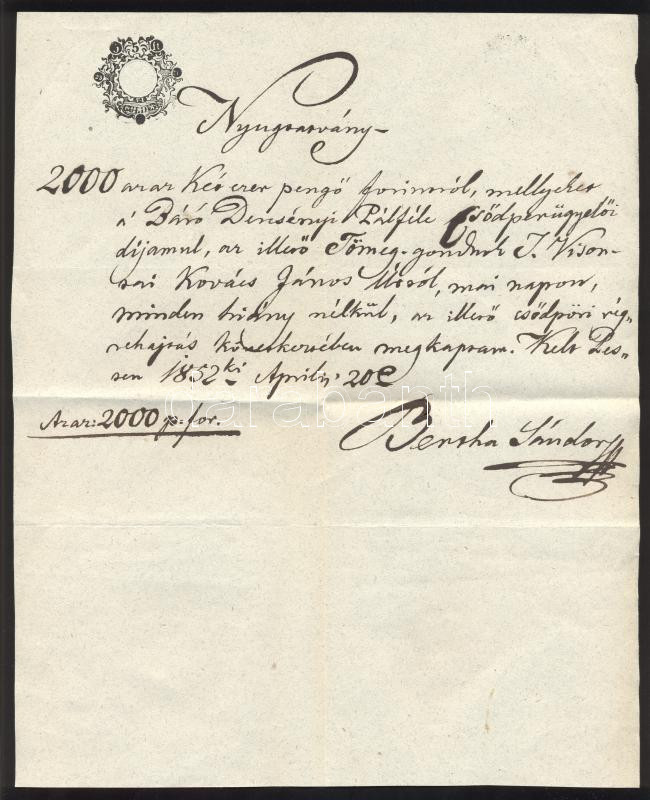 Nyugtatvány
2000 azaz Két ezer pengő forintról, mellyeket
a' Báró Dercsényi Pálféle csődperügyelői
díjamul, az illető Tömeg-gondnok T. Vison-
tai Kovács János Úrtól, mai napon,
minden hiány nélkül, az illető csődpöri vég-
rehajtás következtében megkaptam. Kelt Pes-
ten 1852ki Április 20e
Azaz: 2000 p: for.
Bertha Sándor
darabanth